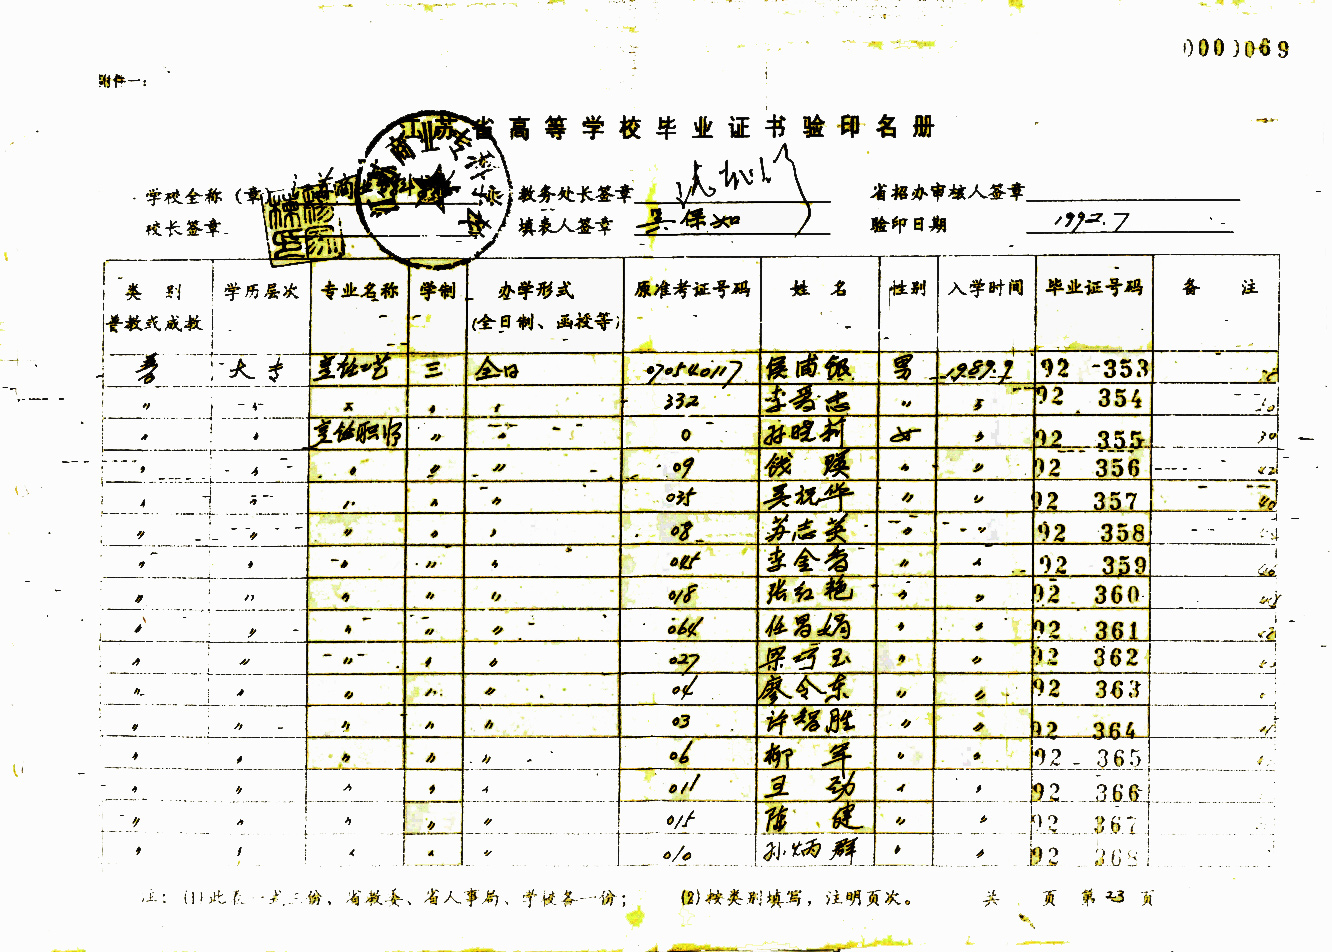 附件一:
江苏省高等学校毕业证书验印名册
学校全称（章） 教务处长签章 省招办审核人签章
校长签章 填表人签章 吴保如 验印日期 1992.7
类别 学历层次 专业名称 学制 办学形式 原准考证号码 姓名 性别 入学时间 毕业证号码 备注
普教或成教 (全日制、函授等)
普 大专 烹饪工艺 三 全日 070540117 侯 银 男 1989.9 92 353
〃 〃 〃 〃 〃 332 李 志 〃 〃 92 354
〃 〃 烹饪职师 〃 〃 0 孙晓莉 女 〃 92 355 30
〃 〃 〃 〃 〃 09 钱瑛 〃 〃 92 356 42
〃 〃 〃 〃 〃 035 吴祝华 〃 〃 92 357 40
〃 〃 〃 〃 〃 08 苏志英 〃 〃 92 358
〃 〃 〃 〃 〃 045 李金香 〃 〃 92 359 40
〃 〃 〃 〃 〃 018 张红艳 〃 〃 92 360
〃 〃 〃 〃 〃 064 任昌娟 〃 〃 92 361
〃 〃 〃 〃 〃 027 梁 玉 〃 〃 92 362
〃 〃 〃 〃 〃 04 廖令东 〃 〃 92 363
〃 〃 〃 〃 〃 03 许智胜 〃 〃 92 364
〃 〃 〃 〃 〃 06 柳军 〃 〃 92 365
〃 〃 〃 〃 〃 011 王劲 〃 〃 92 366
〃 〃 〃 〃 〃 015 陈健 〃 〃 92 367
〃 〃 〃 〃 〃 010 孙炳群 〃 〃 92 368
注: (1)此表一式三份、省教委、省人事局、学校各一份; (2)按类别填写，注明页次。 共 页 第23页